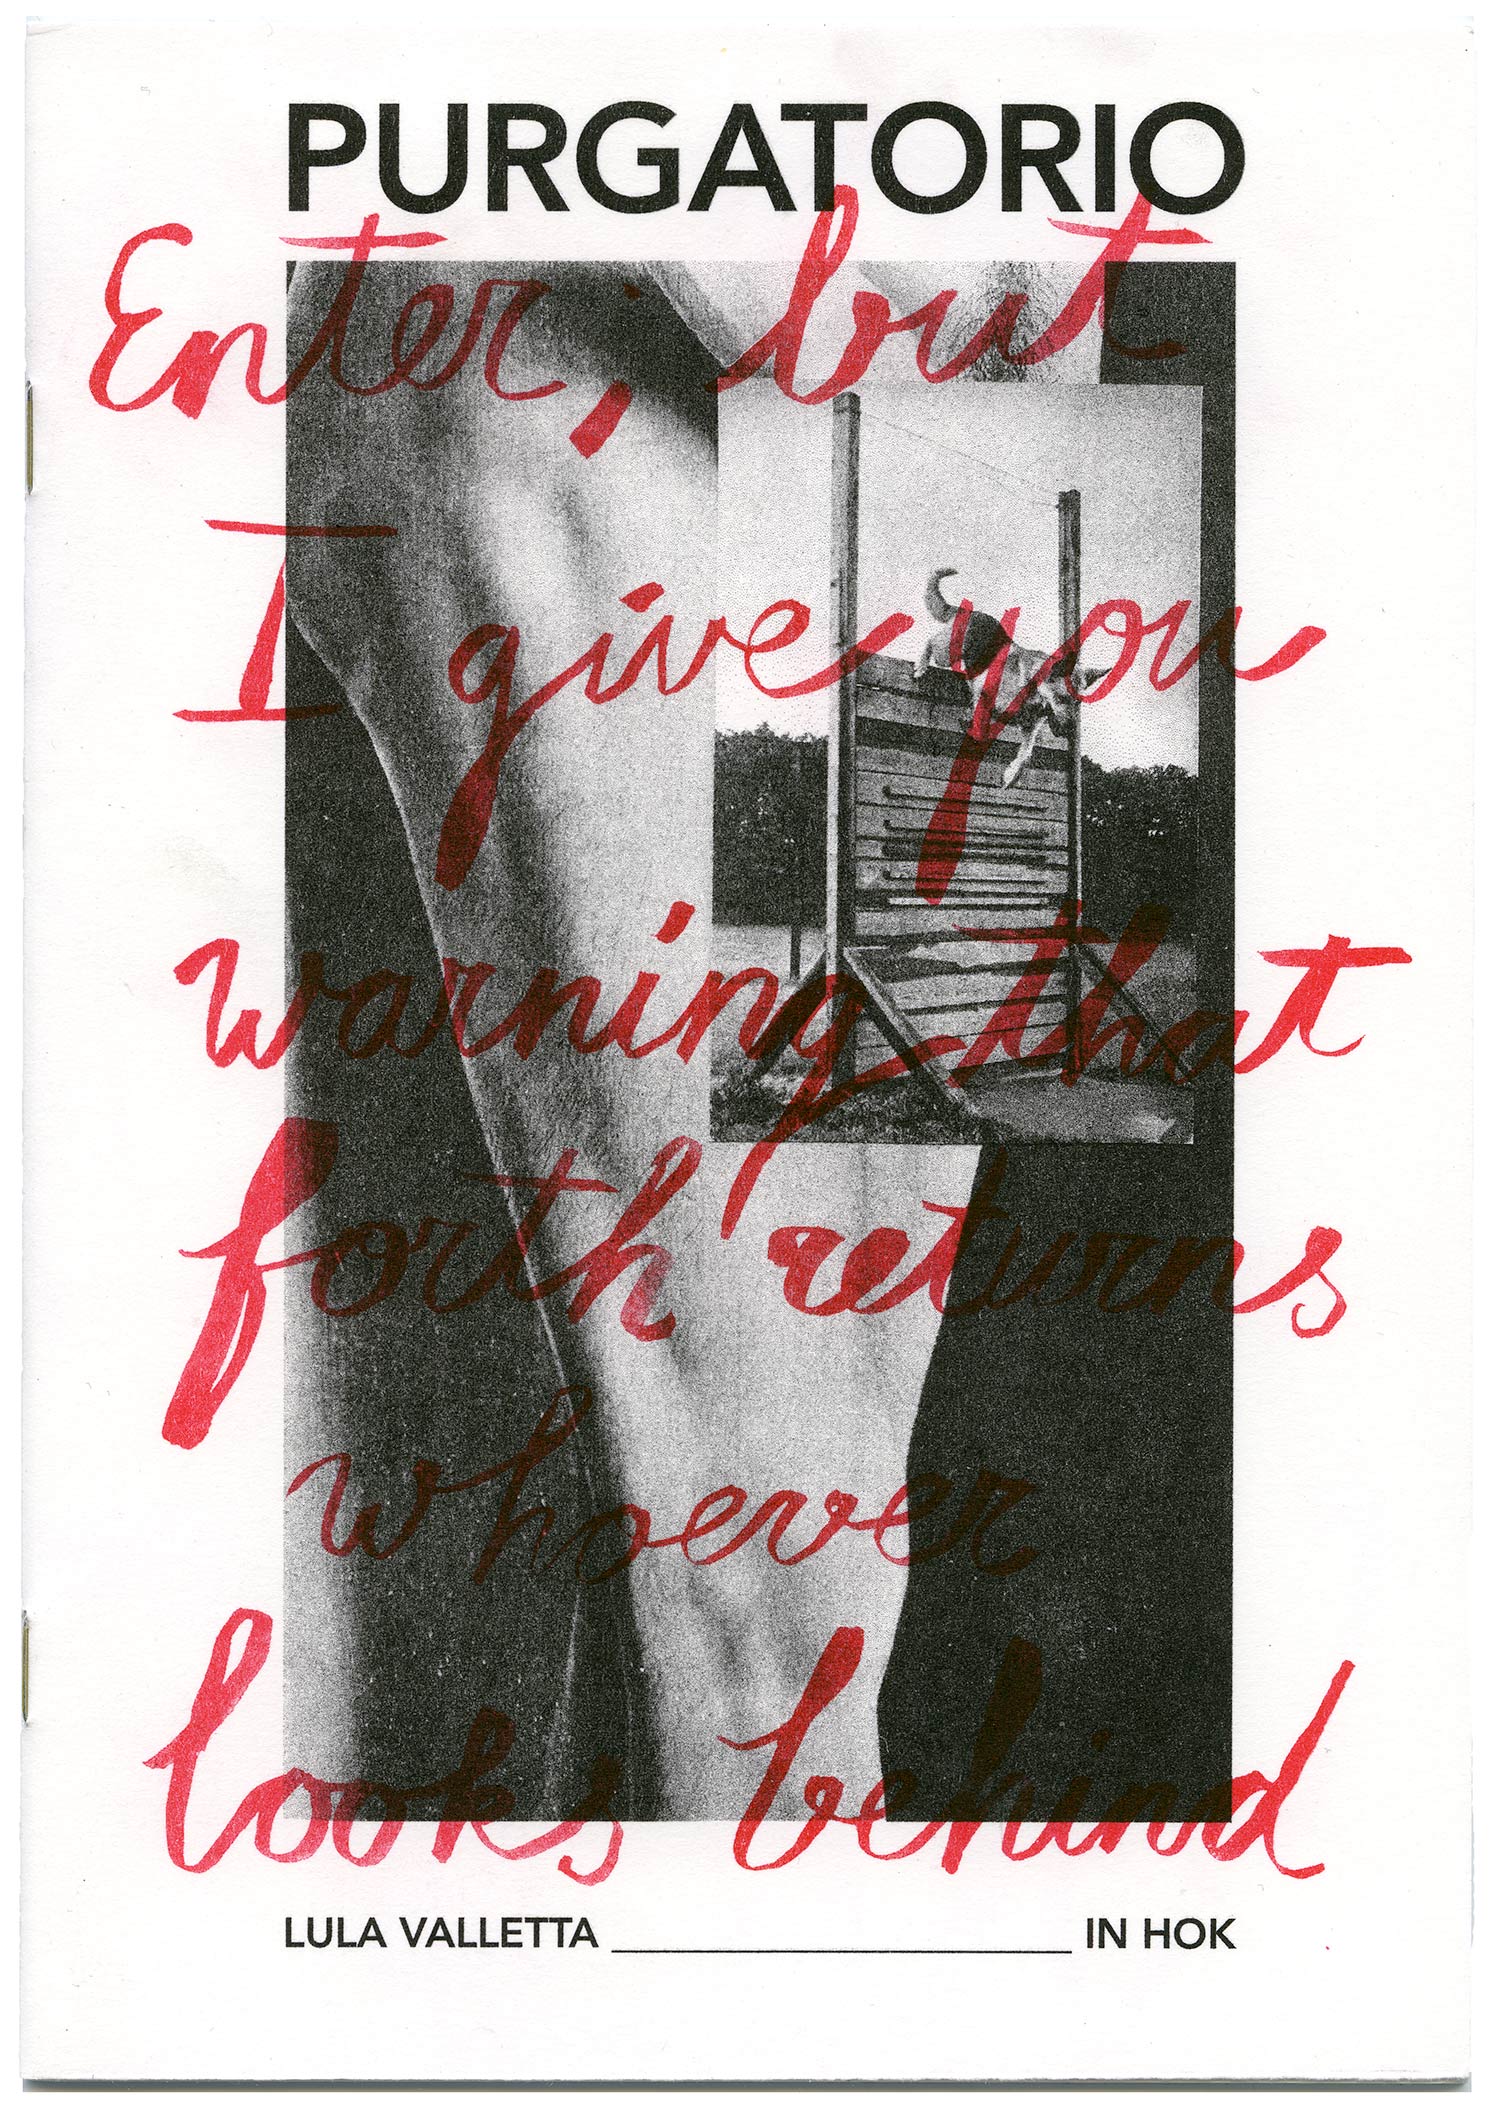 PURGATORIO
Enter; but
I give you
warning that
forth returns
whoever
looks behind
LULA VALLETTA ____________________ IN HOK